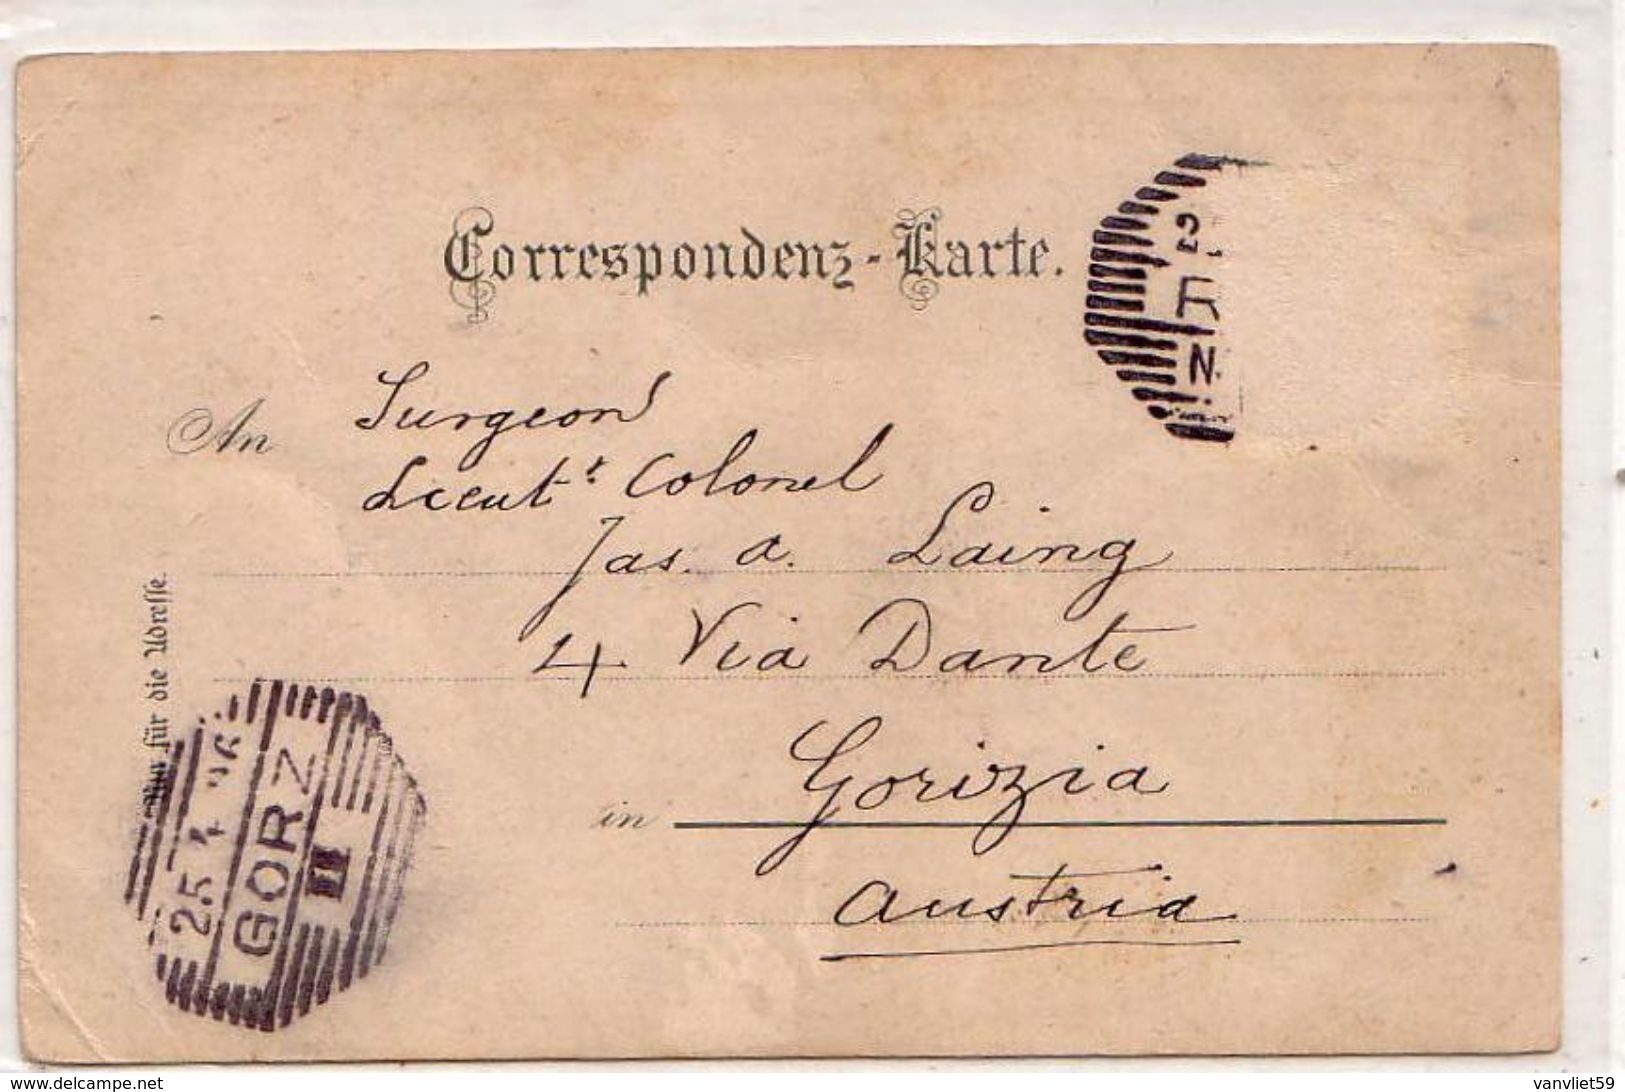 Correspondenz-Karte.
An
Surgeon
Lieut.t Colonel
Jas. A. Laing
4 Via Dante
in Gorizia
Austria
Nur für die Adresse.
25. 4. 96
GORZ
II
www.delcampe.net
vanvliet59